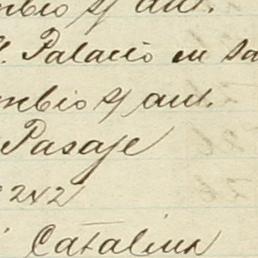 mbio s/ aut.
l. Palacio en Sa
mbio s/ aut.
Pasaje
242
Catalina